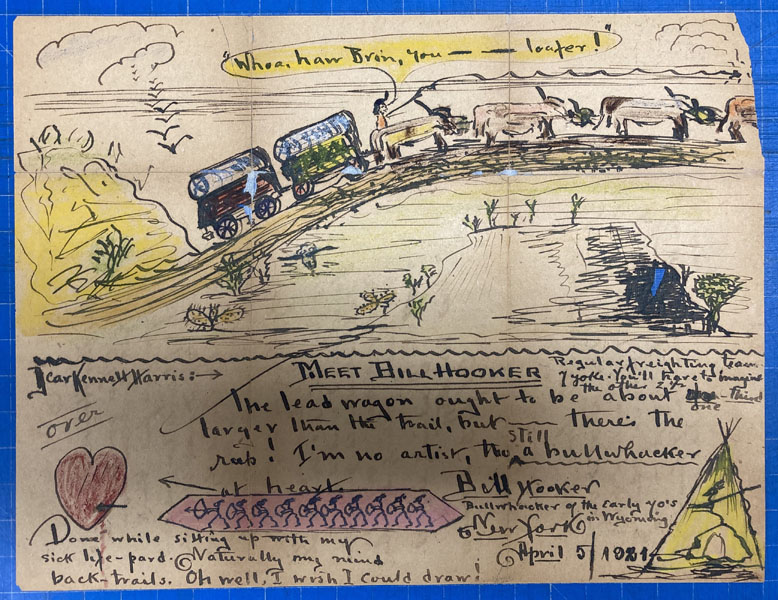 "Whoa, haw Brin, you — — loafer!"
Dear Kennett Harris:
MEET BILL HOOKER
Regular freighting team
7 yoke. You'll have to imagine
the other 2 y
The lead wagon ought to be about one - Third
larger than the trail, but — there's the
rub! I'm no artist, tho still a bullwhacker
at heart
over
Bill Hooker
Bullwhacker of the Early 70's
in Wyoming
New York
April 5/1921
Done while sitting up with my
sick life-pard. Naturally my mind
back-trails. Oh well, I wish I could draw!